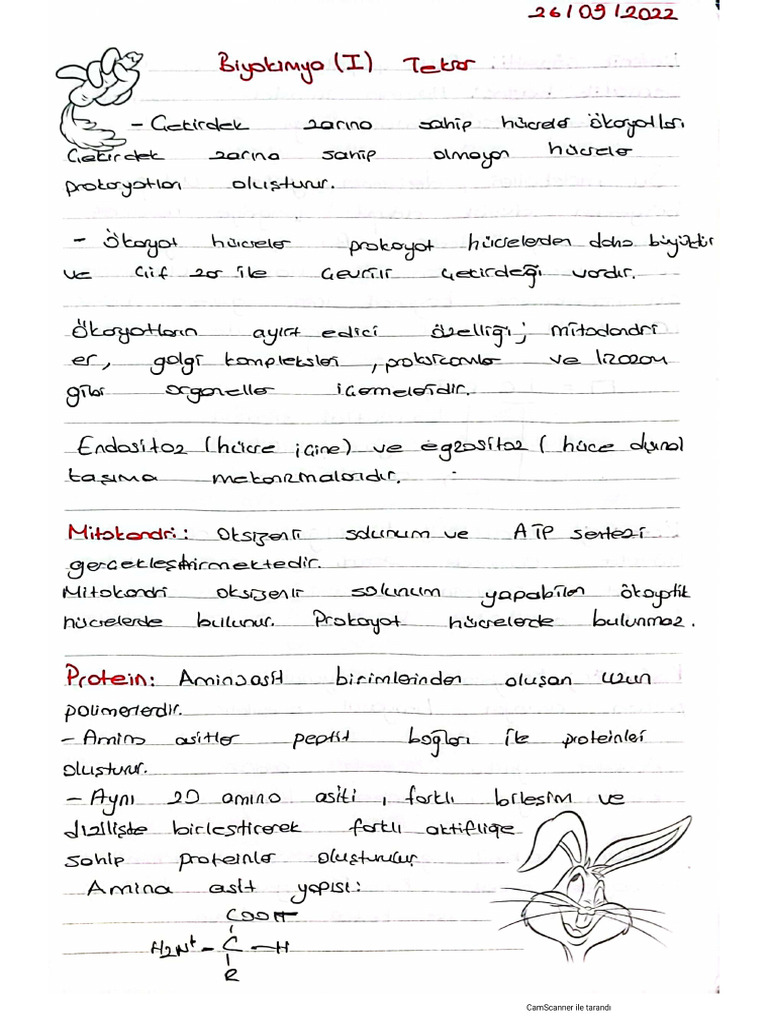 26/09/2022
Biyokimya (I) Tekrar
- Çekirdek zarına sahip hücreler ökoyotları
Çekirdek zarına sahip olmayan hücreler
prokoryotları oluşturur.
- Ökoyot hücreler prokoyot hücrelerden daha büyüktür
ve çif zar ile çevrili çekirdeği vardır.
Ökoyotların ayırt edici özelliği; mitodondri
er, golgi kompleksleri, proksizomlar ve lizozom
gibi organeller içermeleridir.
Endositoz (hücre içine) ve egzositoz (hüce dışına)
taşıma mekanizmalarıdır.
Mitokondri: Oksijenli solunum ve ATP sentezi
gerçekleştirmektedir.
Mitokondri oksijenli solunum yapabilen ökoyotik
hücrelerde bulunur. Prokoyot hücrelerde bulunmaz.
Protein: Aminoasit birimlerinden oluşan uzun
polimerlerdir.
- Amino asitler peptit bağları ile proteinleri
oluşturur.
- Aynı 20 amino asiti, farklı bileşim ve
dizilişte birleştirerek farklı aktifliğe
sahip proteinler oluştururlur
Amina asit yapısı:
COOH
H2N+ - C - H
R
CamScanner ile tarandı